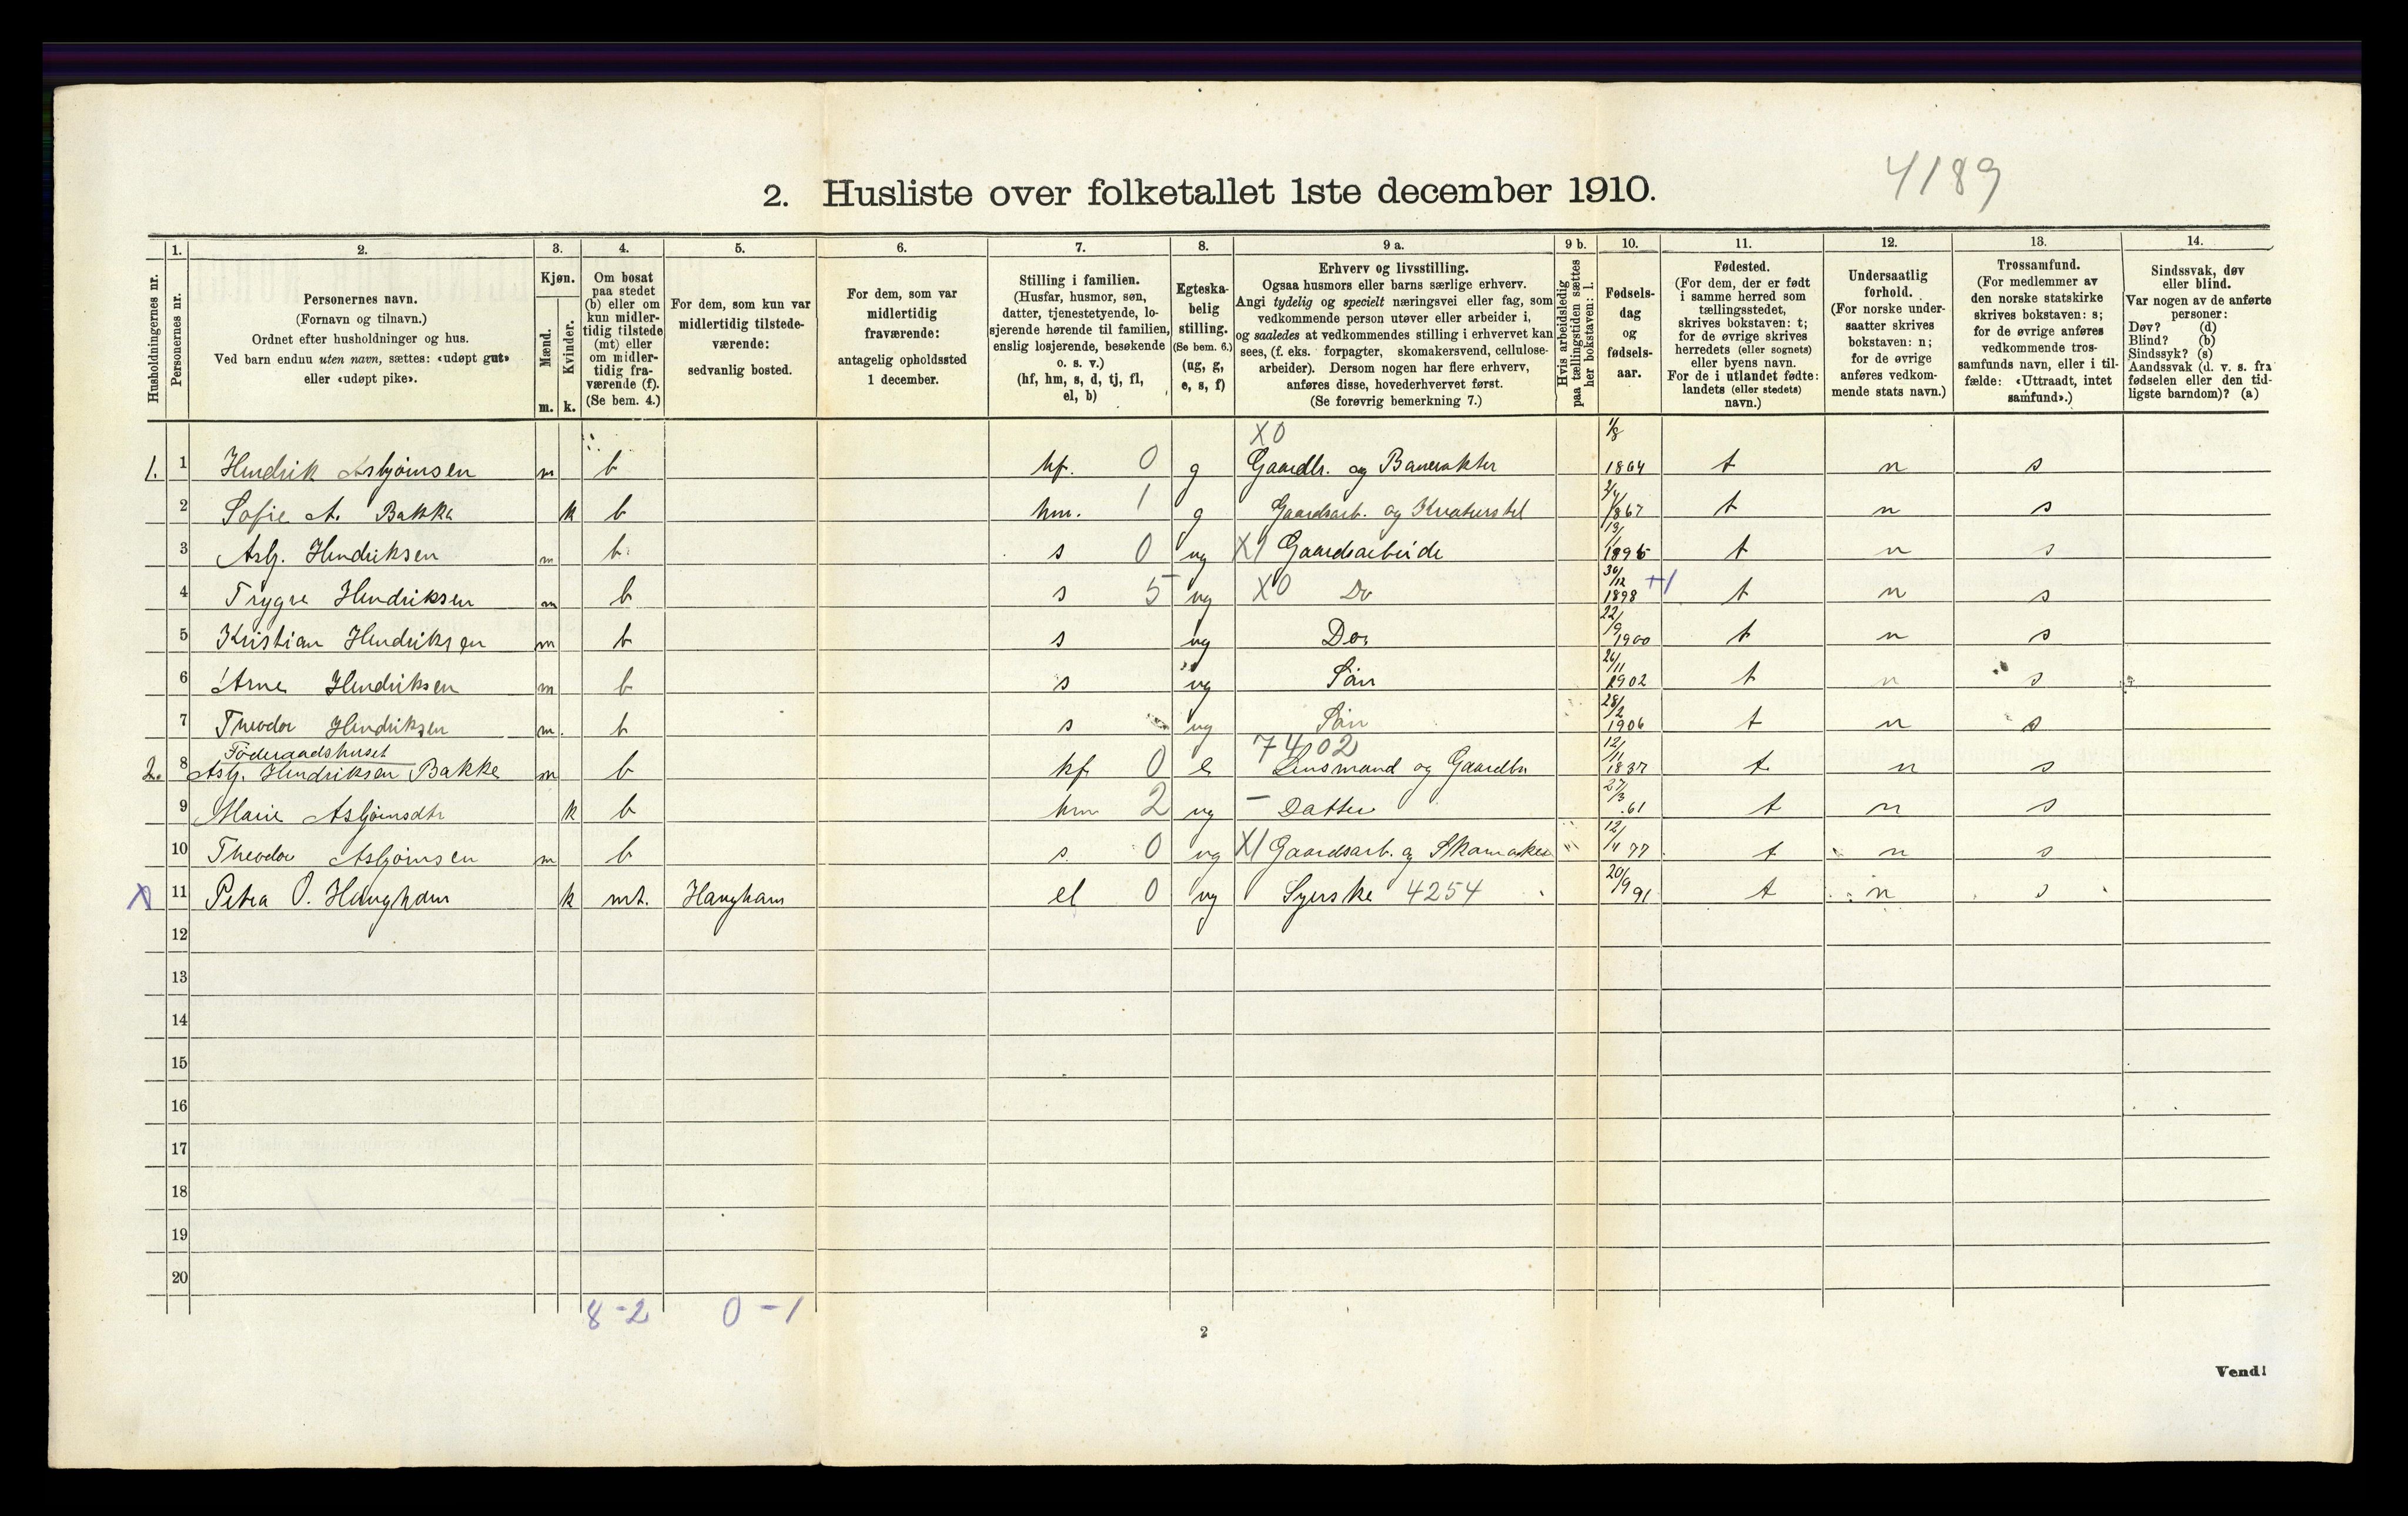 4189
2. Husliste over folketallet 1ste december 1910.
Husholdningernes nr.
1.
Personernes nr.
2.
Personernes navn.
(Fornavn og tilnavn.)
Ordnet efter husholdninger og hus.
Ved barn endnu uten navn, sættes: «udøpt gut»
eller «udøpt pike».
3.
Kjøn.
Mænd.
Kvinder.
m. k.
4.
Om bosat
paa stedet
(b) eller om
kun midler-
tidig tilstede
(mt) eller
om midler-
tidig fra-
værende (f).
(Se bem. 4.)
5.
For dem, som kun var
midlertidig tilstede-
værende:
sedvanlig bosted.
6.
For dem, som var
midlertidig
fraværende:
antagelig opholdssted
1 december.
7.
Stilling i familien.
(Husfar, husmor, søn,
datter, tjenestetyende, lo-
sjerende hørende til familien,
enslig losjerende, besøkende
o. s. v.)
(hf, hm, s, d, tj, fl,
el, b)
8.
Egteska-
belig
stilling.
(Se bem. 6.)
(ug, g,
e, s, f)
9 a.
Erhverv og livsstilling.
Ogsaa husmors eller barns særlige erhverv.
Angi tydelig og specielt næringsvei eller fag, som
vedkommende person utøver eller arbeider i,
og saaledes at vedkommendes stilling i erhvervet kan
sees, (f. eks. forpagter, skomakersvend, cellulose-
arbeider). Dersom nogen har flere erhverv,
anføres disse, hovederhvervet først.
(Se forøvrig bemerkning 7.)
9 b.
Hvis arbeidsledig
paa tællingstiden sættes
her bokstaven: l.
10.
Fødsels-
dag
og
fødsels-
aar.
11.
Fødested.
(For dem, der er født
i samme herred som
tællingsstedet,
skrives bokstaven: t;
for de øvrige skrives
herredets (eller sognets)
eller byens navn.
For de i utlandet fødte:
landets (eller stedets)
navn.)
12.
Undersaatlig
forhold.
(For norske under-
saatter skrives
bokstaven: n;
for de øvrige
anføres vedkom-
mende stats navn.)
13.
Trossamfund.
(For medlemmer av
den norske statskirke
skrives bokstaven: s;
for de øvrige anføres
vedkommende tros-
samfunds navn, eller i til-
fælde: «Uttraadt, intet
samfund».)
14.
Sindssvak, døv
eller blind.
Var nogen av de anførte
personer:
Døv? (d)
Blind? (b)
Sindssyk? (s)
Aandssvak (d. v. s. fra
fødselen eller den tid-
ligste barndom)? (a)
1. 1 Hendrik Asbjørnsen m b hf. 0 g X0 Gaardbr. og Banevakter 1/8 1864 t n s
2 Sofie A. Bakke k b hm. 1 g Gaardsarb. og Kreaturstel 2/4 1867 t n s
3 Asbj. Hendriksen m b s 0 ug X1 Gaardsarbeide 19/1 1895 t n s
4 Trygve Hendriksen m b s 5 ug X0 Do 30/12 1898 +1 t n s
5 Kristian Hendriksen m b s ug Do. 22/9 1900 t n s
6 Arne Hendriksen m b s ug Søn 26/11 1902 t n s
7 Theodor Hendriksen m. b s ug Søn 28/2 1906 t n s
Föderaadshuset
2. 8 Asbj. Hendriksen Bakke m b hf 0 e 7402 Lensmand og Gaardbr 12/11 1837 t n s
9 Marie Asbjørnsdtr k b hm 2 ug — Datter 27/3 .61 t n s
10 Theodor Asbjørnsen m b s. 0 ug X1 Gaardsarb. og Skomaker 12/4 77 t n s
X 11 Petra O. Haugham k mt. Haugham el 0 ug Syerske 4254 20/9 91 t n s
12
13
14
15
16
17
18
19
20
8 - 2 0 - 1
2
Vend!